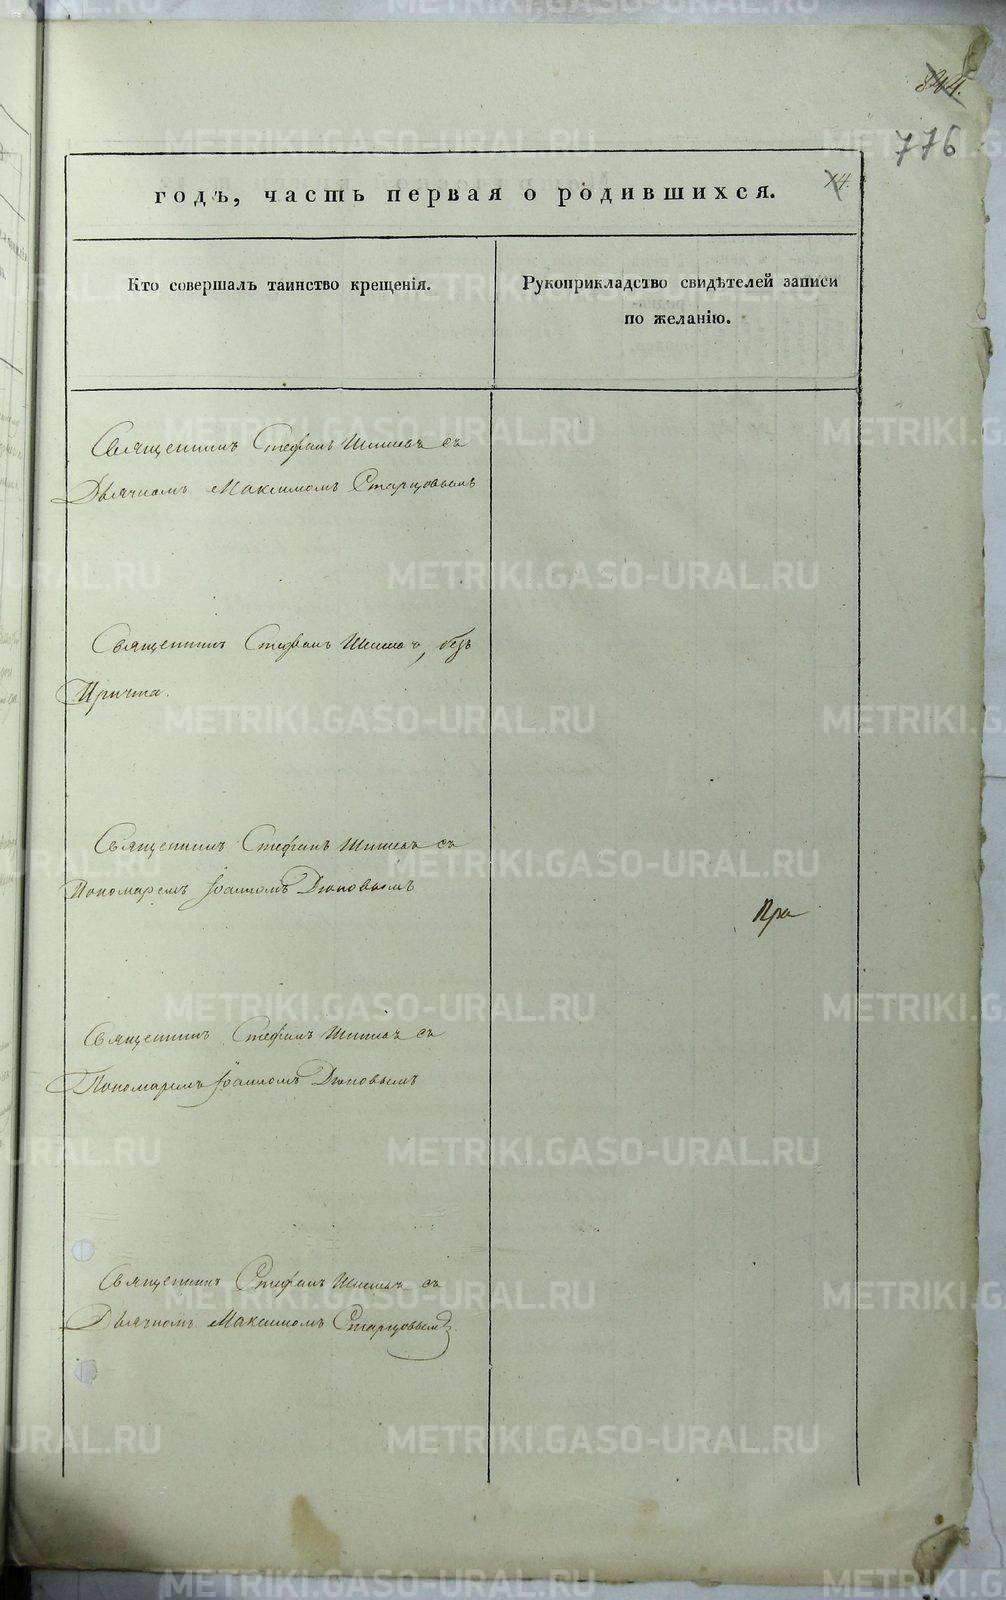 844.
776
14.
годъ, часть первая о родившихся.
Кто совершалъ таинство крещенія.
Рукоприкладство свидѣтелей записи
по желанію.
Священникъ Стефанъ Шишевъ съ
Дьячкомъ Максимомъ Старцовымъ
Священникъ Стефанъ Шишевъ, безъ
Причта.
Священникъ Стефанъ Шишевъ съ
Пономаремъ Іоанномъ Дюповымъ
Пра
Священникъ Стефанъ Шишевъ съ
Пономаремъ Іоанномъ Дюповымъ
Священникъ Стефанъ Шишевъ съ
Дьячкомъ Максимомъ Старцовымъ.
METRIKI.GASO-URAL.RU